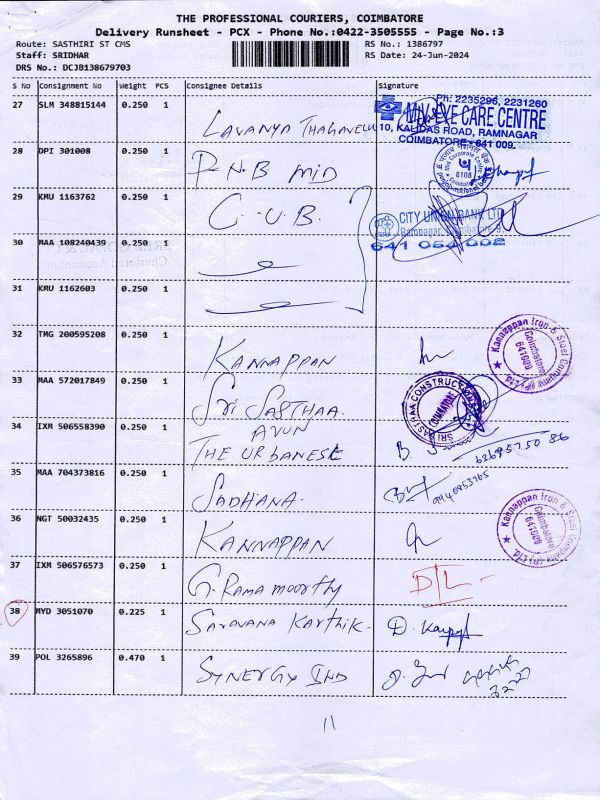 THE PROFESSIONAL COURIERS, COIMBATORE
Delivery Runsheet - PCX - Phone No.:0422-3505555 - Page No.:3
Route: SASTHIRI ST CMS RS No.: 1386797
Staff: SRIDHAR RS Date: 24-Jun-2024
DRS No.: DCJB138679703
S No Consignment No Weight PCS Consignee Details Signature
27 SLM 348815144 0.250 1 Lavanya Thangavelu
Ph: 2235296, 2231260
EYE CARE CENTRE
10, KALIDAS ROAD, RAMNAGAR
COIMBATORE - 641 009.
28 DPI 301008 0.250 1 P.N.B MID
29 KMU 1163762 0.250 1 C.U.B.
CITY UNION BANK LTD
Ramnagar, Coimbatore-9.
641 054 002
30 MAA 108240439 0.250 1
31 KMU 1162603 0.250 1
32 TMG 200595208 0.250 1 KANNAPPAN
Kannappan Iron & Steel Company (P) Ltd
Coimbatore
641009
33 MAA 572017849 0.250 1 Sri SASTHAA.
SRI SASTHAA CONSTRUCTION
COIMBATORE
34 IXM 506558390 0.250 1 AVUN
THE URBANESE
35 MAA 704373816 0.250 1 SADHANA.
36 NGT 50032435 0.250 1 KANNAPPAN
Kannappan Iron & Steel Company (P) Ltd
Coimbatore
641009
37 IXM 506576573 0.250 1 G. Rama moorthy DL
38 MYD 3051070 0.225 1 Saravana Karthik.
39 POL 3265896 0.470 1 SYNERGY IND
11